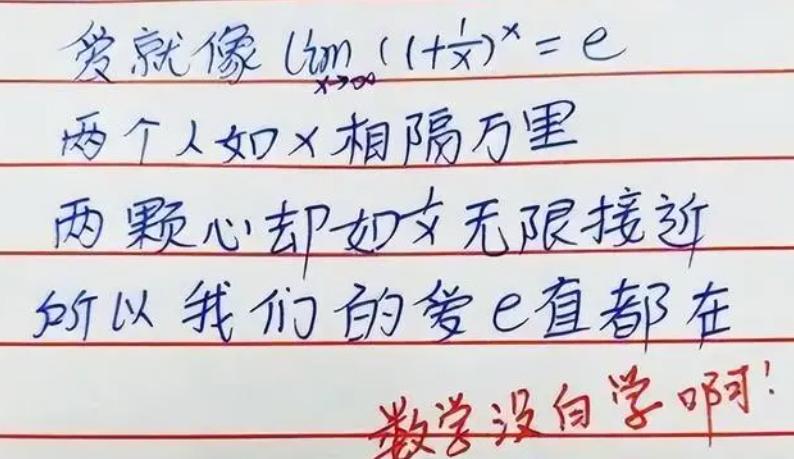 爱就像 lim x→∞ (1+1/x)^x = e
两个人如x相隔万里
两颗心却如1/x无限接近
所以我们的爱e直都在
数学没白学啊!